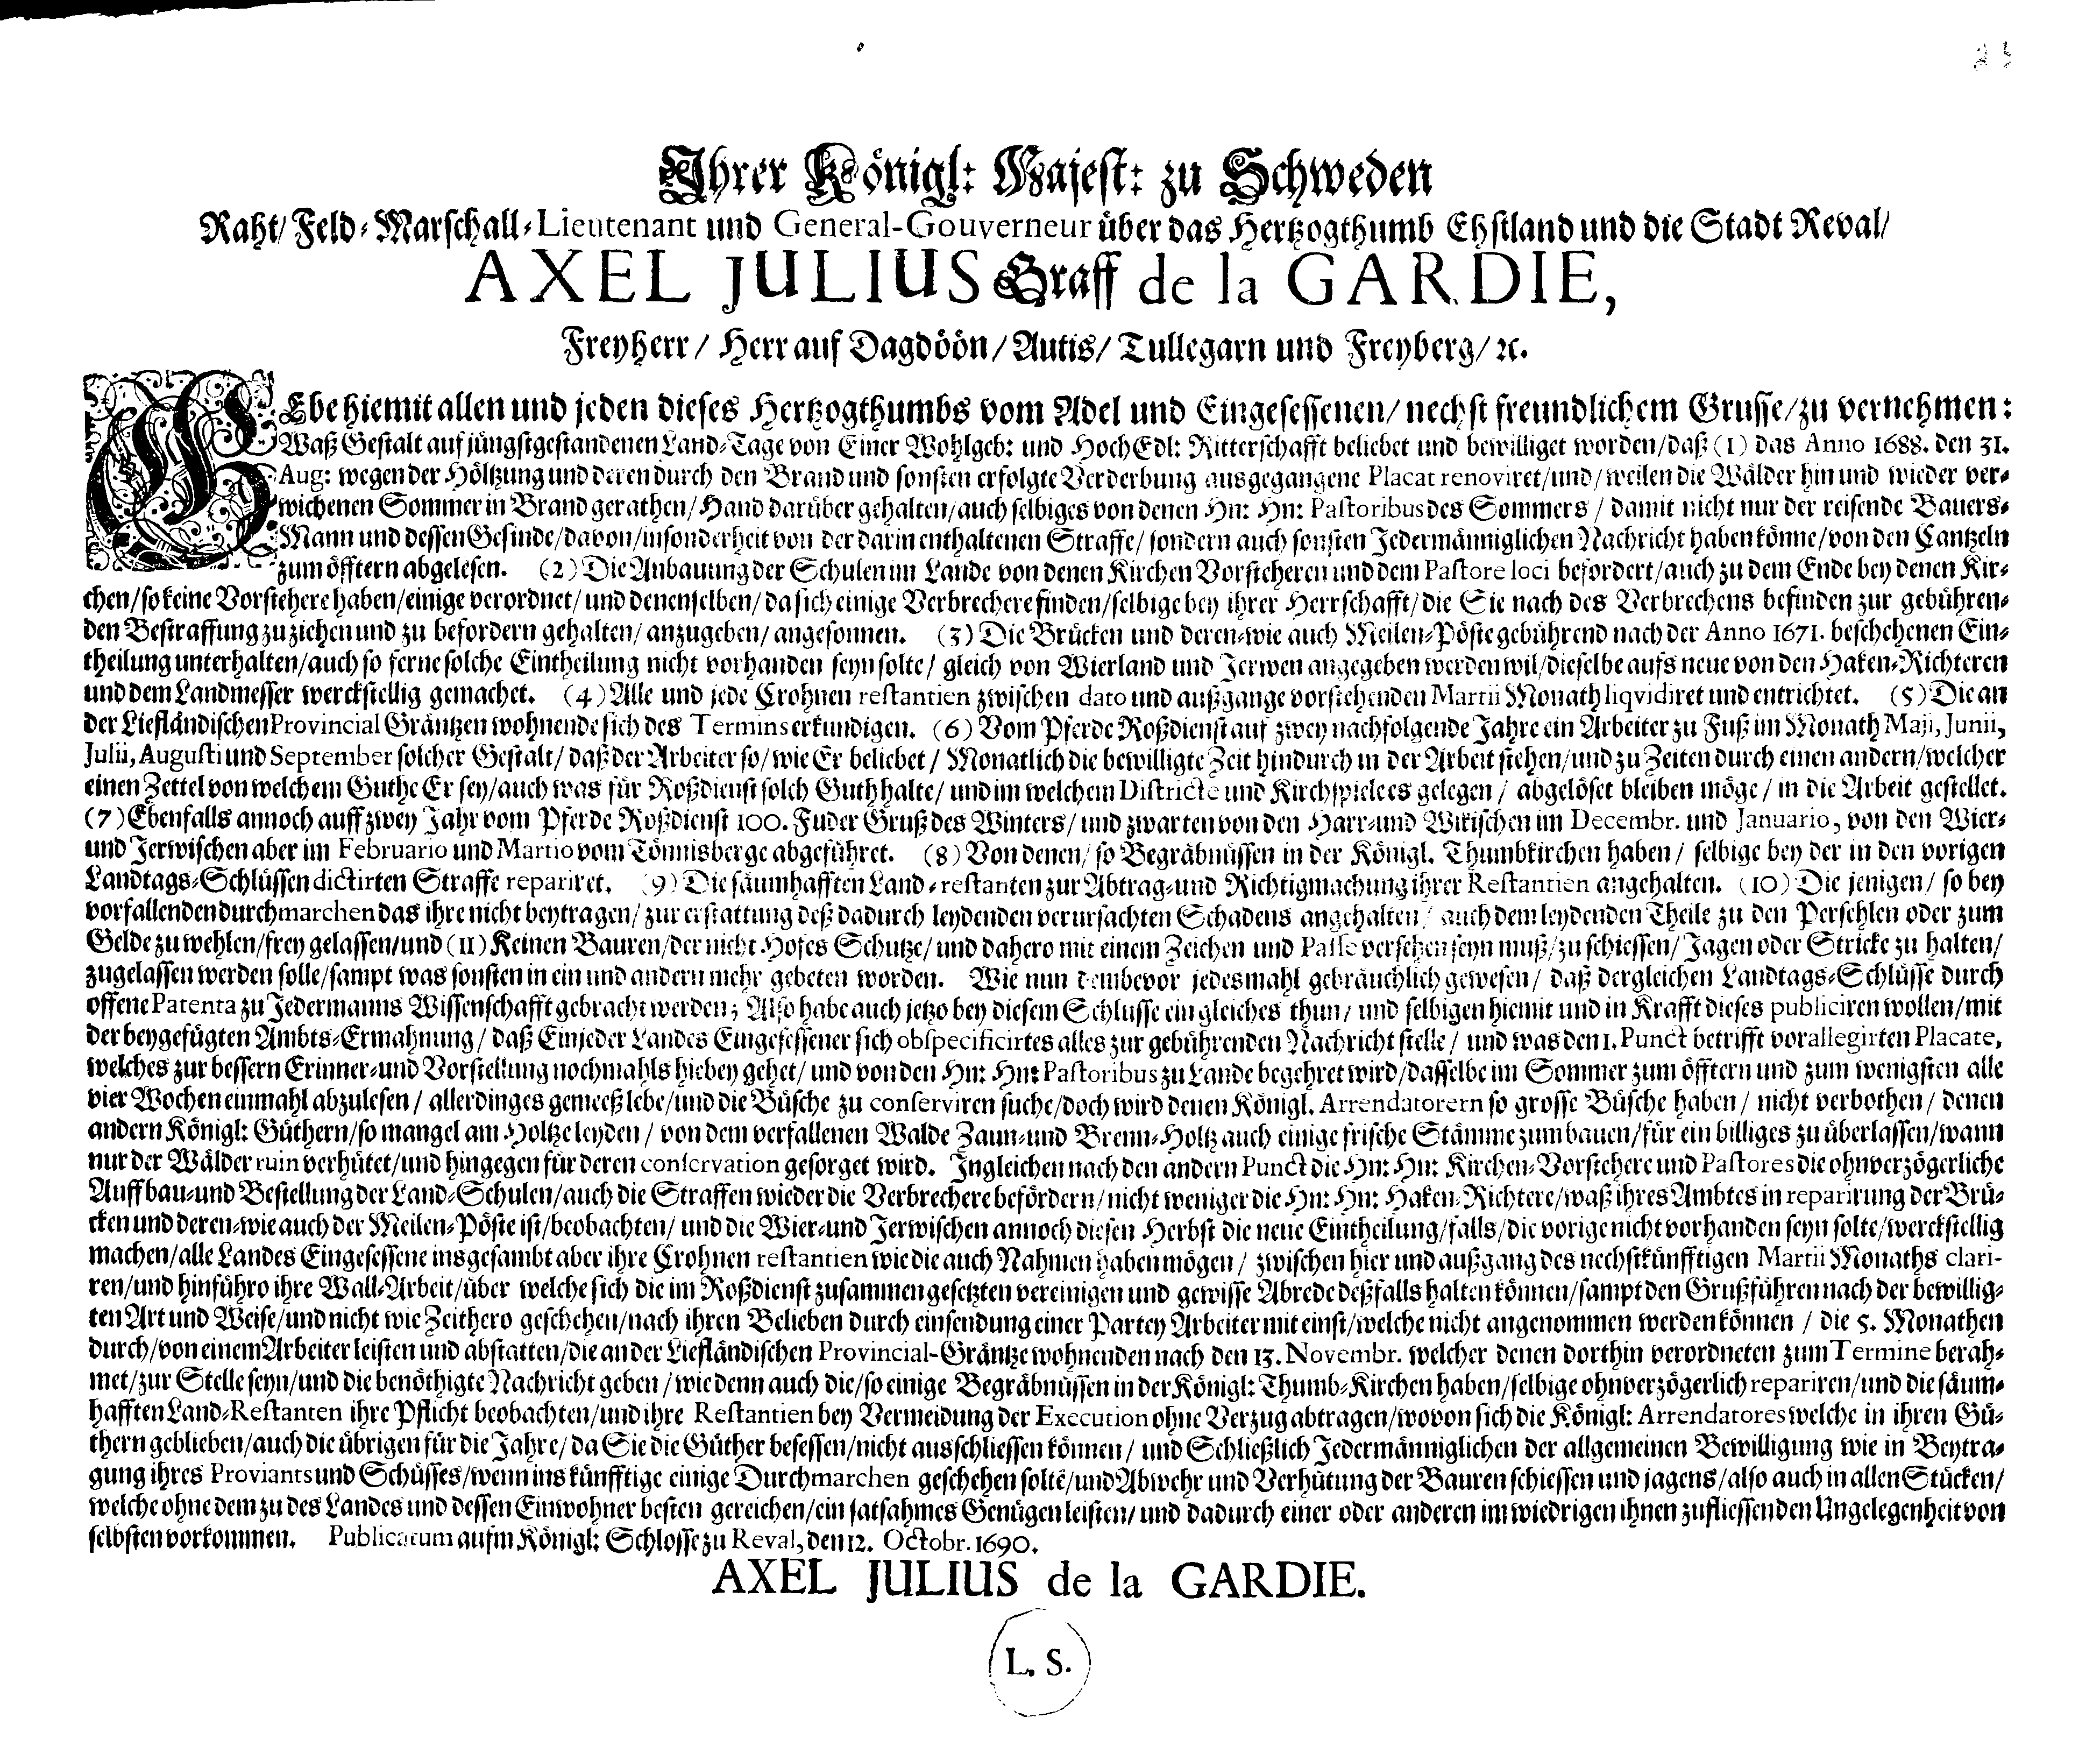 Ihrer Königl: Majest: zu Schweden
Raht/ Feld-Marschall-Lieutenant und General-Gouverneur über das Hertzogthumb Ehstland und die Stadt Reval/
AXEL JULIUS Graff de la GARDIE,
Freyherr/ Herr auf Dagdöön/ Autis/ Tullegarn und Freyberg/ ꝛc.
GEbe hiemit allen und jeden dieses Hertzogthumbs vom Adel und Eingesessenen/ nechst freundlichem Grusse/ zu vernehmen:
Waß Gestalt auf jüngstgestandenen Land-Tage von Einer Wohlgeb: und HochEdl: Ritterschafft beliebet und bewilliget worden/ daß (1) das Anno 1688. den 31.
Aug: wegen der Höltzung und deren durch den Brand und sonsten erfolgte Verderbung ausgegangene Placat renoviret/ und/ weilen die Wälder hin und wieder ver-
wichenen Sommer in Brand gerathen/ Hand darüber gehalten/ auch selbiges von denen Hn: Hn: Pastoribus des Sommers/ damit nicht nur der reisende Bauers-
Mann und dessen Gesinde/ davon/ insonderheit von der darin enthaltenen Straffe/ sondern auch sonsten Jedermänniglichen Nachricht haben könne/ von den Cantzeln
zum öfftern abgelesen. (2) Die Anbauung der Schulen im Lande von denen Kirchen Vorsteheren und dem Pastore loci befordert/ auch zu dem Ende bey denen Kir-
chen/ so keine Vorstehere haben/ einige verordnet/ und denenselben/ da sich einige Verbrechere finden/ selbige bey ihrer Herrschafft/ die Sie nach des Verbrechens befinden zur gebühren-
den Bestraffung zu ziehen und zu befordern gehalten/ anzugeben/ angesonnen. (3) Die Brücken und deren-wie auch Meilen-Pöste gebührend nach der Anno 1671. beschehenen Ein-
theilung unterhalten/ auch so ferne solche Eintheilung nicht vorhanden seyn solte/ gleich von Wierland und Jerwen angegeben werden wil/ dieselbe aufs neue von den Haken-Richteren
und dem Landmesser werckstellig gemachet. (4) Alle und jede Crohnen restantien zwischen dato und außgange vorstehenden Martii Monath liqvidiret und entrichtet. (5) Die an
der Liefländischen Provincial Gräntzen wohnende sich des Termins erkundigen. (6) Vom Pferde Roßdienst auf zwey nachfolgende Jahre ein Arbeiter zu Fuß im Monath Maji, Junii,
Julii, Augusti und September solcher Gestalt/ daß der Arbeiter so/ wie Er beliebet/ Monatlich die bewilligte Zeit hindurch in der Arbeit stehen/ und zu Zeiten durch einen andern/ welcher
einen Zettel von welchem Guthe Er sey/ auch was für Roßdienst solch Guth halte/ und im welchem Districte und Kirchspiele es gelegen/ abgelöset bleiben möge/ in die Arbeit gestellet.
(7) Ebenfalls annoch auff zwey Jahr vom Pferde Roßdienst 100. Fuder Gruß des Winters/ und zwarten von den Harr-und Wikischen im Decembr. und Januario, von den Wier-
und Jerwischen aber im Februario und Martio vom Tönnisberge abgeführet. (8) Von denen/ so Begräbnüssen in der Königl. Thumbkirchen haben/ selbige bey der in den vorigen
Landtags-Schlüssen dictirten Straffe repariret. (9) Die säumhafften Land-restanten zur Abtrag-und Richtigmachung ihrer Restantien angehalten. (10) Die jenigen/ so bey
vorfallenden durchmarchen das ihre nicht beytragen/ zur erstattung deß dadurch leydenden verursachten Schadens angehalten/ auch dem leydenden Theile zu den Persehlen oder zum
Gelde zu wehlen/ frey gelassen/ und (11) Keinen Bauren/ der nicht Hofes Schutze/ und dahero mit einem Zeichen und Passe versehen seyn muß/ zu schiessen/ Jagen oder Stricke zu halten/
zugelassen werden solle/ sampt was sonsten in ein und andern mehr gebeten worden. Wie nun dembevor jedesmahl gebräuchlich gewesen/ daß dergleichen Landtags-Schlüsse durch
offene Patenta zu Jedermanns Wissenschafft gebracht werden; Also habe auch jetzo bey diesem Schlusse ein gleiches thun/ und selbigen hiemit und in Krafft dieses publiciren wollen/ mit
der beygefügten Ambts-Ermahnung/ daß Einjeder Landes Eingesessener sich obspecificirtes alles zur gebührenden Nachricht stelle/ und was den 1. Punct betrifft vorallegirten Placate,
welches zur bessern Erinner-und Vorstellung nochmahls hiebey gehet/ und von den Hn: Hn: Pastoribus zu Lande begehret wird/ dasselbe im Sommer zum öfftern und zum wenigsten alle
vier Wochen einmahl abzulesen/ allerdinges gemeeß lebe/ und die Büsche zu conserviren suche/ doch wird denen Königl. Arrendatorern so grosse Büsche haben/ nicht verbothen/ denen
andern Königl: Güthern/ so mangel am Holtze leyden/ von dem verfallenen Walde Zaun-und Brenn-Holtz auch einige frische Stämme zum bauen/ für ein billiges zu überlassen/ wann
nur der Wälder ruin verhütet/ und hingegen für deren conservation gesorget wird. Ingleichen nach den andern Punct die Hn: Hn: Kirchen-Vorstehere und Pastores die ohnverzögerliche
Auffbau-und Bestellung der Land-Schulen/ auch die Straffen wieder die Verbrechere befördern/ nicht weniger die Hn: Hn: Haken-Richtere/ waß ihres Ambtes in reparirung der Brü-
cken und deren-wie auch der Meilen-Pöste ist/ beobachten/ und die Wier-und Jerwischen annoch diesen Herbst die neue Eintheilung/ falls/ die vorige nicht vorhanden seyn solte/ werckstellig
machen/ alle Landes Eingesessene insgesambt aber ihre Crohnen restantien wie die auch Nahmen haben mögen/ zwischen hier und außgang des nechstkünfftigen Martii Monaths clari-
ren/ und hinführo ihre Wall-Arbeit/ über welche sich die im Roßdienst zusammen gesetzten vereinigen und gewisse Abrede deßfalls halten können/ sampt den Grußführen nach der bewillig-
ten Art und Weise/ und nicht wie Zeithero geschehen/ nach ihren Belieben durch einsendung einer Partey Arbeiter mit einst/ welche nicht angenommen werden können/ die 5. Monathen
durch/ von einem Arbeiter leisten und abstatten/ die an der Liefländischen Provincial-Gräntze wohnenden nach den 13. Novembr. welcher denen dorthin verordneten zum Termine berah-
met/ zur Stelle seyn/ und die benöthigte Nachricht geben/ wie denn auch die/ so einige Begräbnüssen in der Königl: Thumb-Kirchen haben/ selbige ohnverzögerlich repariren/ und die säum-
hafften Land-Restanten ihre Pflicht beobachten/ und ihre Restantien bey Vermeidung der Execution ohne Verzug abtragen/ wovon sich die Königl: Arrendatores welche in ihren Gü-
thern geblieben/ auch die übrigen für die Jahre/ da Sie die Güther besessen/ nicht ausschliessen können/ und Schließlich Jedermänniglichen der allgemeinen Bewilligung wie in Beytra-
gung ihres Proviants und Schüsses/ wenn ins künfftige einige Durchmarchen geschehen soltē/ und Abwehr und Verhütung der Bauren schiessen und jagens/ also auch in allen Stücken/
welche ohne dem zu des Landes und dessen Einwohner besten gereichen/ ein satsahmes Genügen leisten/ und dadurch einer oder anderen im wiedrigen ihnen zufliessenden Ungelegenheit von
selbsten vorkommen. Publicatum aufm Königl: Schlosse zu Reval, den 12. Octobr. 1690.
AXEL JULIUS de la GARDIE.
L. S.